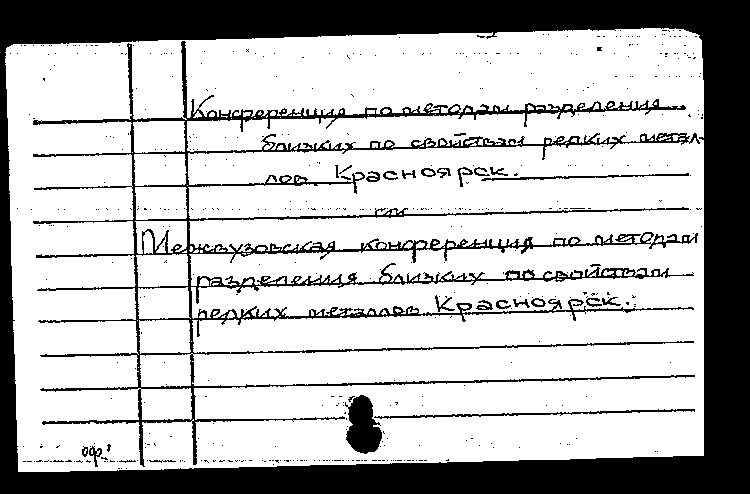 Конференция по методам разделения
близких по свойствам редких метал-
лов. Красноярск.
см
Межвузовская конференция по методам
разделения близких по свойствам
редких металлов Красноярск.